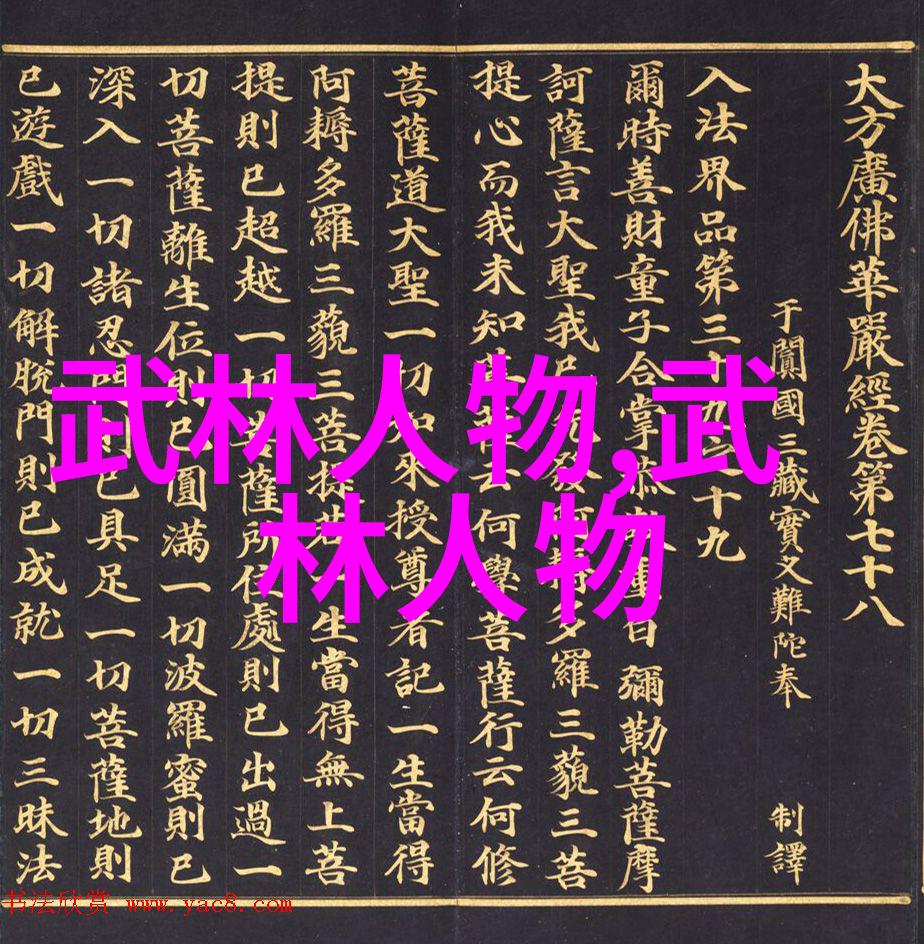 大方廣佛華嚴經卷第七十八
于闐國三藏實叉難陀奉 制譯
入法界品第三十九之十九
爾時善財童子合掌恭敬重白彌勒菩薩摩
訶薩言大聖我已先發阿耨多羅三藐三菩
提心而我未知菩薩云何學菩薩行云何修
菩薩道大聖一切如來授尊者記一生當得
阿耨多羅三藐三菩提若一生當得無上菩
提則已超越一切菩薩所住處則已出過一
切菩薩離生位則已圓滿一切波羅蜜則已
深入一切諸忍門則已具足一切菩薩地則
已遊戲一切解脫門則已成就一切三昧法
武林人物,武
林人物
书法欣赏 www.yac8.com